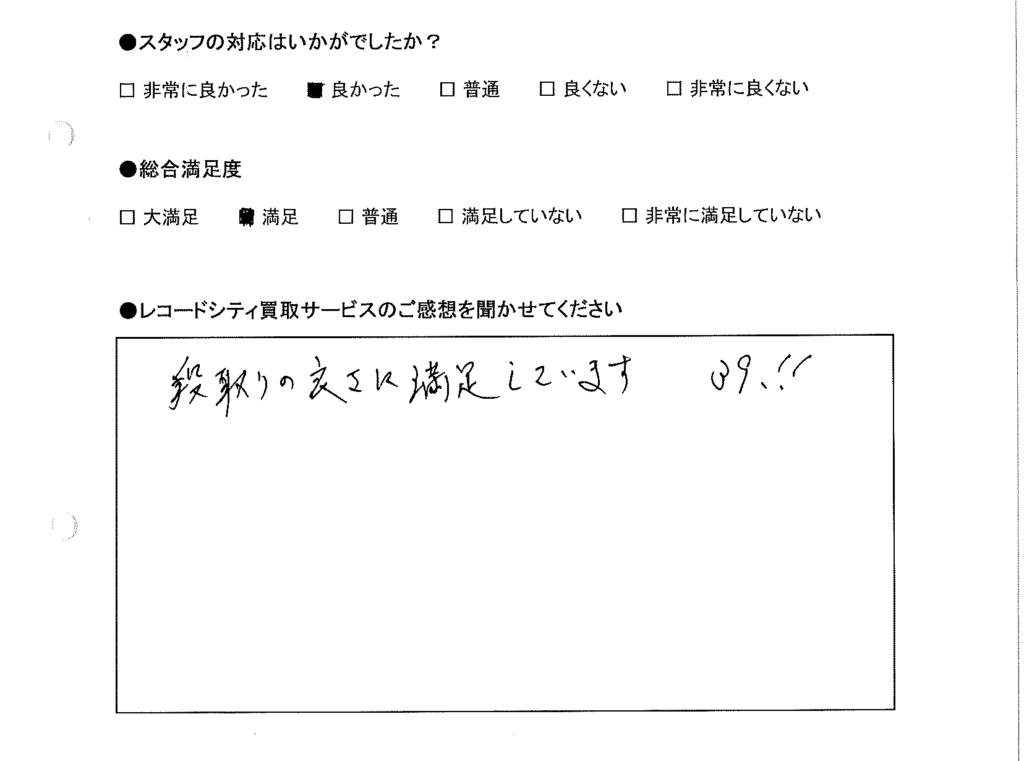 ●スタッフの対応はいかがでしたか？
□ 非常に良かった ■ 良かった □ 普通 □ 良くない □ 非常に良くない
●総合満足度
□ 大満足 ■ 満足 □ 普通 □ 満足していない □ 非常に満足していない
●レコードシティ買取サービスのご感想を聞かせてください
段取りの良さに満足しています 39、!!